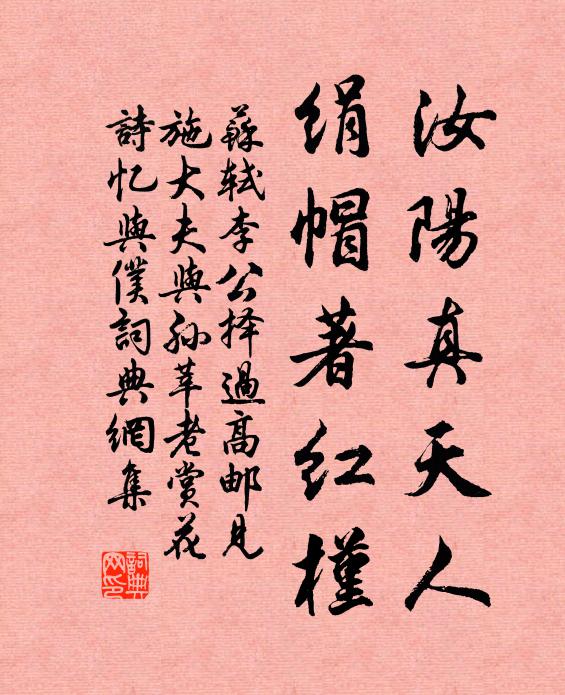 汝陽真天人
絹帽著紅槿
蘇軾李公择過高邮見
施大夫與孙莘老赏花
詩忆與僕詞典網集
詞典网印